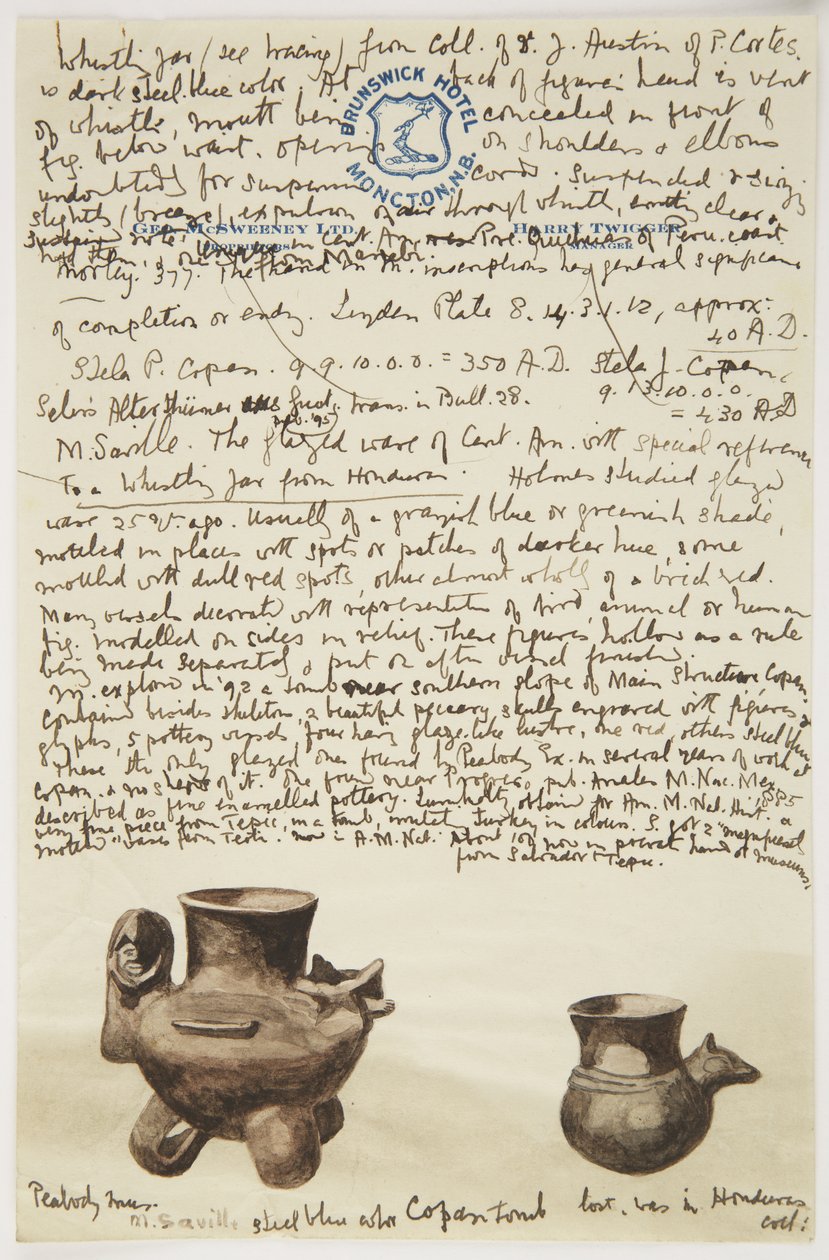 Whistling jar (see tracing) from Coll. of Dr. J. Austin of P. Cortes.
is dark steel blue color. At back of figure's head is vent
of whistle, mouth being concealed in front of
fig. below waist. openings on shoulders & elbows
undoubtedly for suspension cords. Suspended & swing
BRUNSWICK HOTEL
MONCTON, N.B.
slightly (breeze), expulsion of air through whistle, clear &
GEO. McSWEENEY LTD.
PROPRIETORS
HARRY TWIGGER
MANAGER
note. in Cent. Am. Pre. Quichua of Peru. coast
had them, & one from Manabi.
Morley. 377. The hand in M. inscriptions has general significance
of completion or ending. Leyden Plate 8. 14. 3. 1. 12, approx:
40 A.D.
Stela P. Copan. 9. 9. 10. 0. 0. = 350 A.D. Stela J. Copan.
9. 13. 10. 0. 0.
= 430 A.D
Seler's Alterthümer aus Guat. trans. in Bull. 28.
pub. '95
M. Saville. The glazed ware of Cent. Am. with special reference
To a Whistling Jar from Honduras. Holmes studied glazed
ware 25 yr. ago. Usually of a grayish blue or greenish shade,
mottled in places with spots or patches of darker hue, some
mottled with dull red spots, other almost wholly of a brick red.
Many vessels decorated with representation of bird, animal or human
fig. modelled on sides in relief. These figures hollow as a rule
being made separately & put on after vessel finished.
M. explored in '92 a tomb near southern slope of Main Structure Copan.
Contained besides skeleton, 2 beautiful peccary skulls engraved with figures &
glyphs, 5 pottery vessels four having glaze-like lustre, one red, others steel blue
These the only glazed ones found by Peabody Ex. in several years of work at
Copan. & no sherds of it. One found near Progreso, pub. Anales M. Nac. Mex
1885
described as fine enamelled pottery. Lumholtz obtained for Am. M. Nat. Hist. a
very fine piece from Tepic, in a tomb, imitating turkey in colours. S. got 2 "magnificent
mottled" vases from Tepic. now in A.M. Nat. About 100 now in private hands or museums,
from Salvador to Tepic.
Peabody mus.
M. Saville steel blue color Copan tomb
lost. was in Honduras
coll: